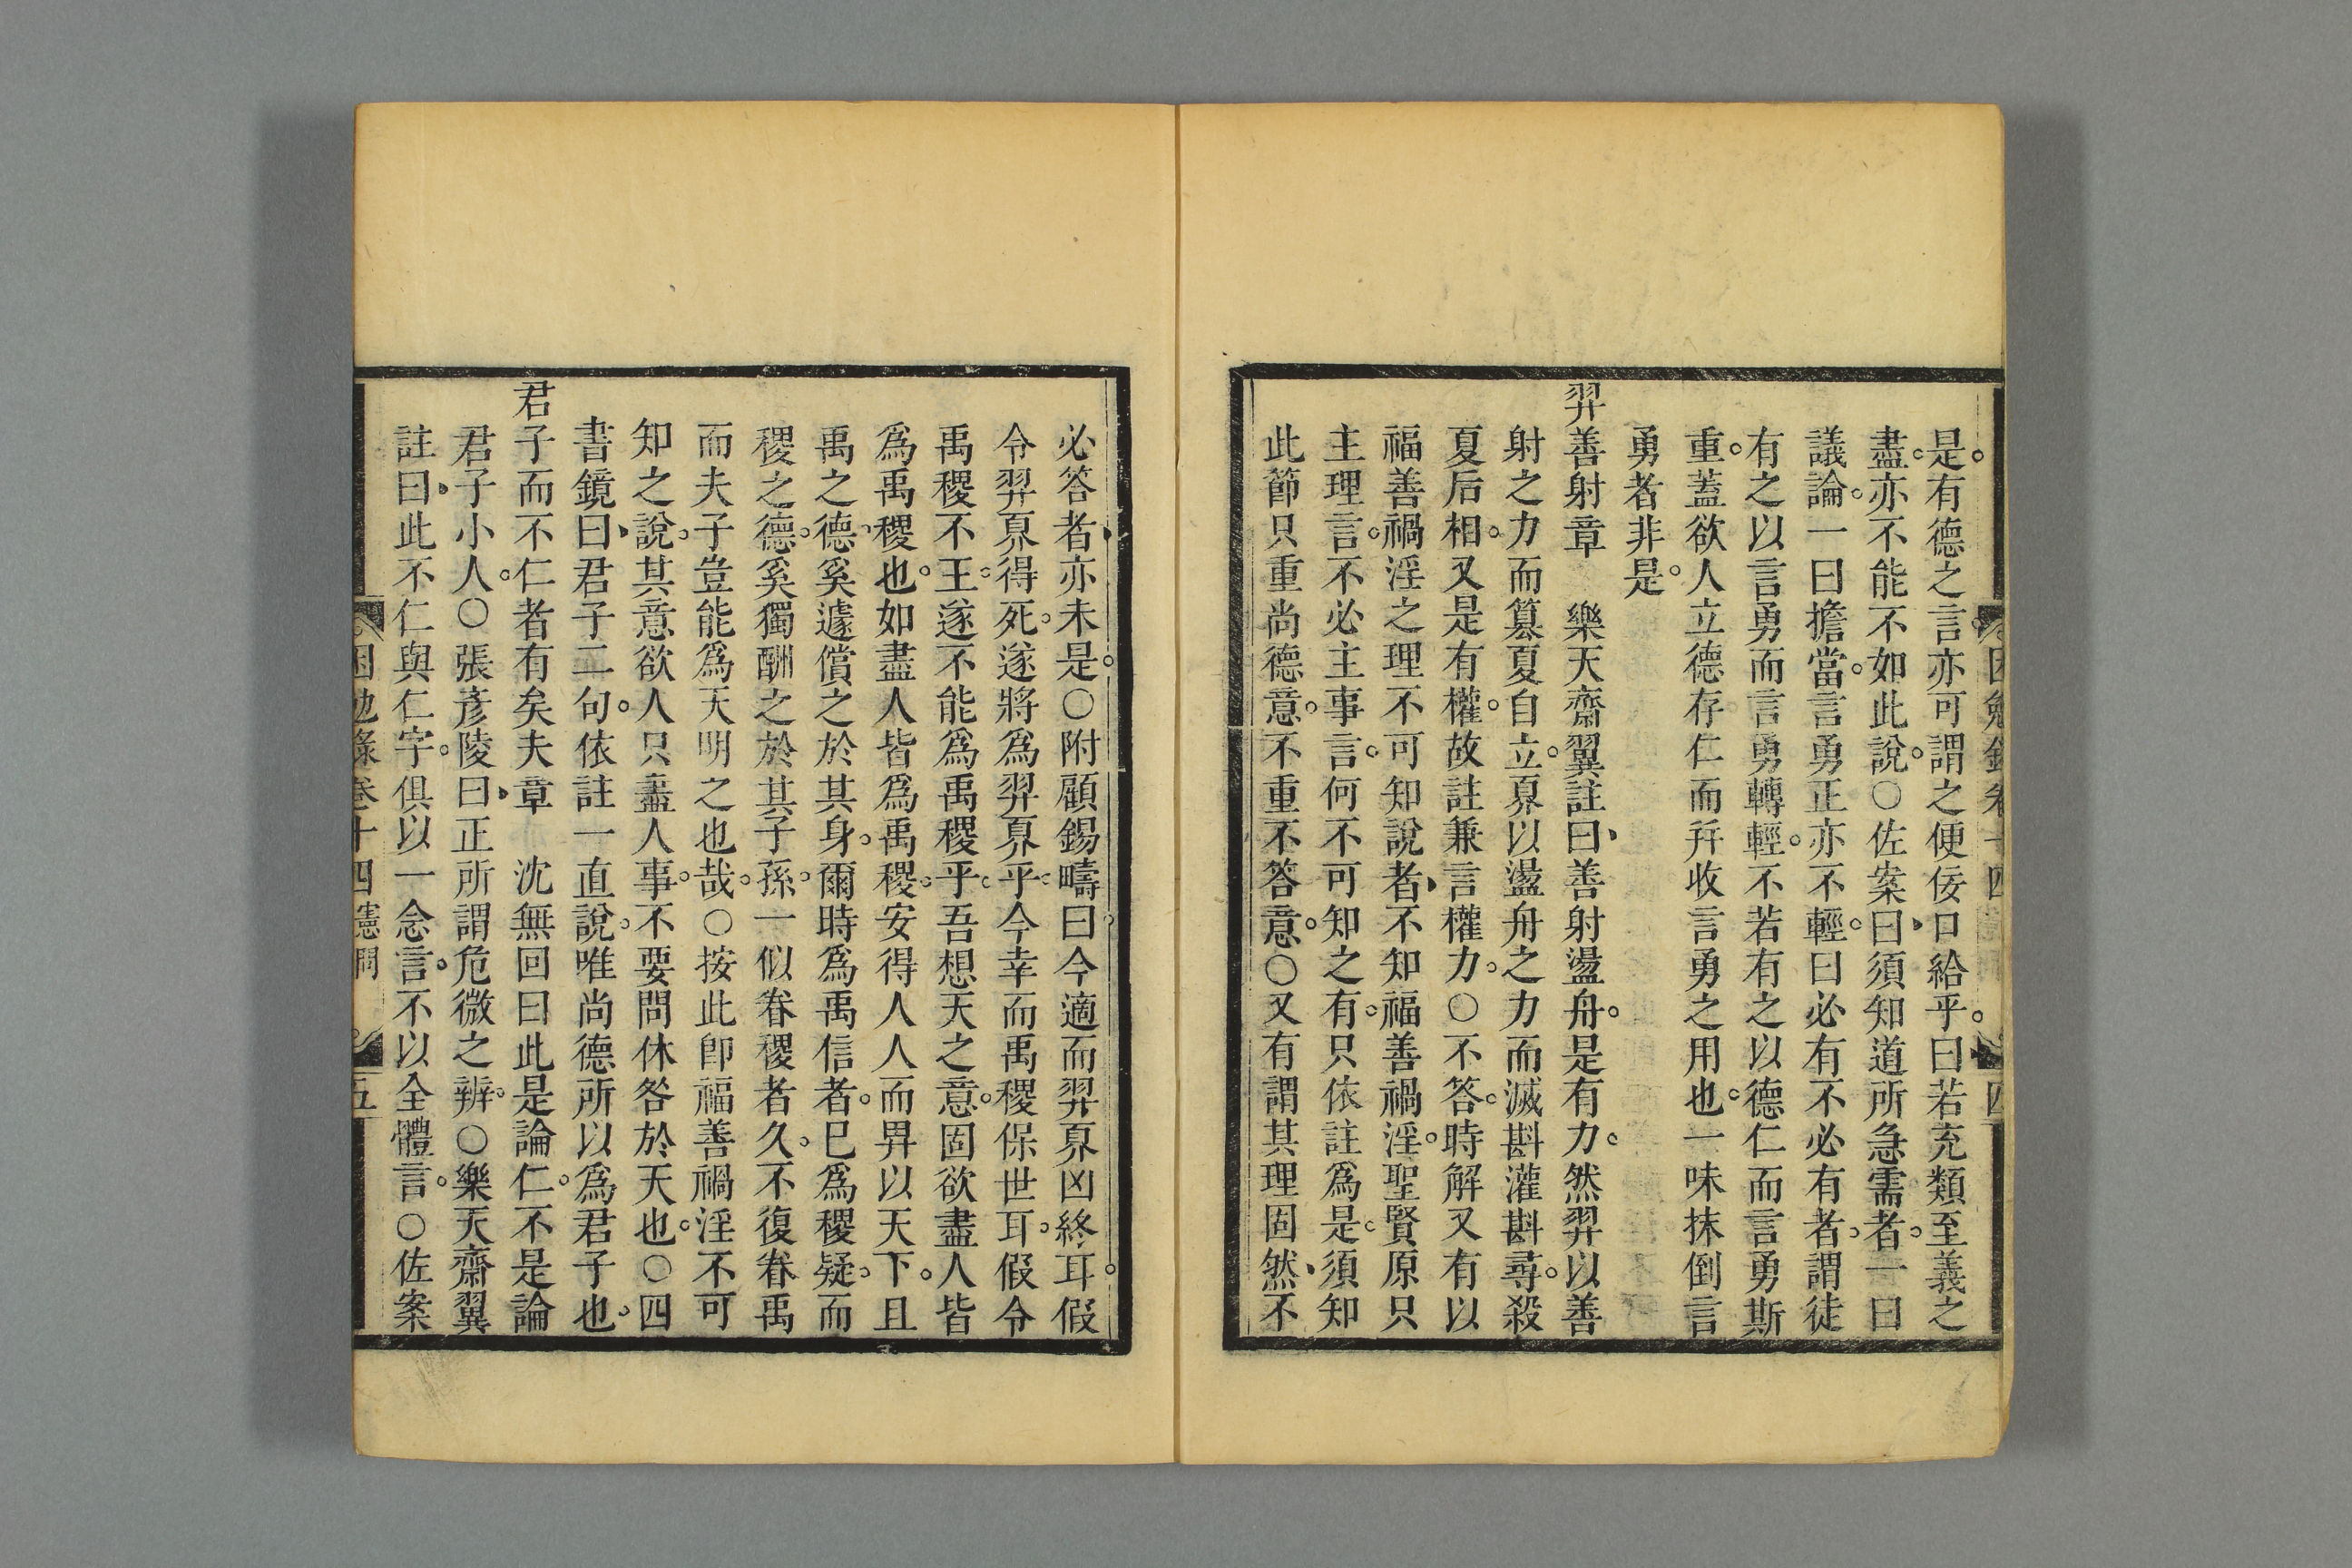 是有德之言亦可謂之便佞口給乎曰若充類至義之
盡亦不能不如此說○佐案曰須知道所急需者一曰
議論一曰擔當言勇正亦不輕曰必有不必有者謂徒
有之以言勇而言勇轉輕不若有之以德仁而言勇斯
重蓋欲人立德存仁而幷收言勇之用也一味抹倒言
勇者非是
羿善射章　樂天齋翼註曰善射盪舟是有力然羿以善
射之力而篡夏自立奡以盪舟之力而滅斟灌斟尋殺
夏后相又是有權故註兼言權力○不答時解又有以
福善禍淫之理不可知說者不知福善禍淫聖賢原只
主理言不必主事言何不可知之有只依註爲是須知
此節只重尚德意不重不答意○又有謂其理固然不
必答者亦未是○附顧錫疇曰今適而羿奡凶終耳假
令羿奡得死遂將爲羿奡乎今幸而禹稷保世耳假令
禹稷不王遂不能爲禹稷乎吾想天之意固欲盡人皆
爲禹稷也如盡人皆爲禹稷安得人人而畀以天下且
禹之德奚遽償之於其身爾時爲禹信者巳爲稷疑而
稷之德奚獨酬之於其子孫一似眷稷者久不復眷禹
而夫子豈能爲天明之也哉○按此卽福善禍淫不可
知之說其意欲人只盡人事不要問休咎於天也○四
書鏡曰君子二句依註一直說唯尚德所以爲君子也
君子而不仁者有矣夫章　沈無回曰此是論仁不是論
君子小人○張彥陵曰正所謂危微之辨○樂天齋翼
註曰此不仁與仁字俱以一念言不以全體言○佐案
困勉錄卷十四憲問　五